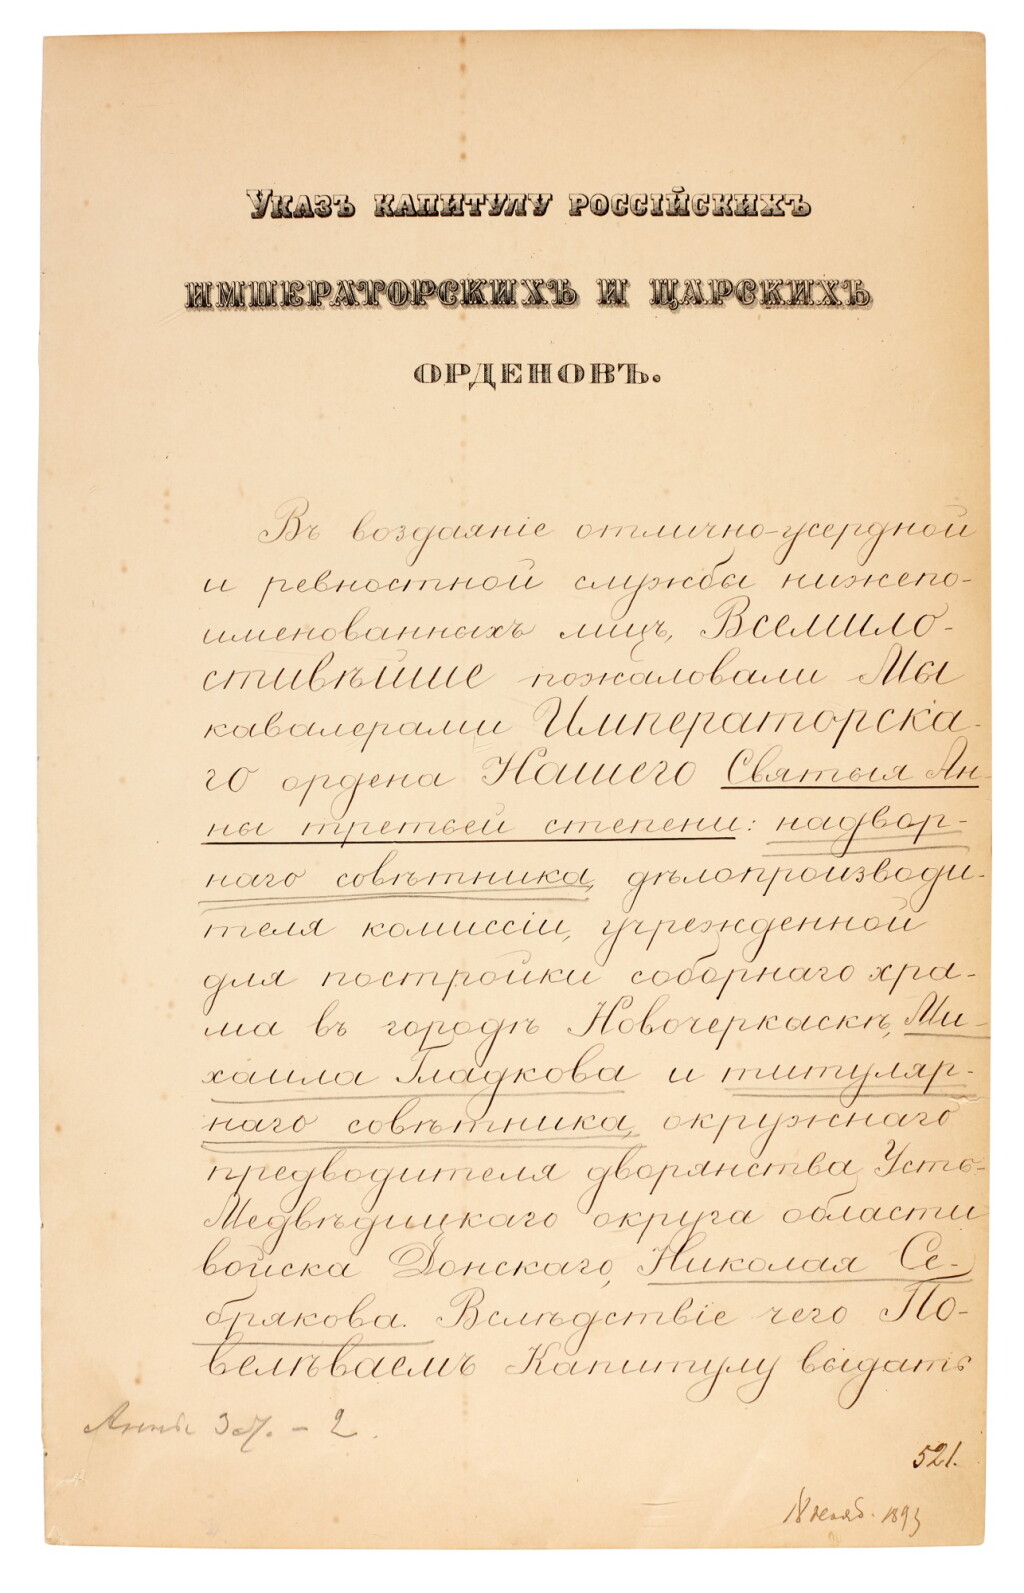 Указъ капитулу россійскихъ
императорскихъ и царскихъ
орденовъ.
Въ воздаяніе отлично-усердной
и ревностной службы нижепо-
именованныхъ лицъ, Всемило-
стивѣйше пожаловали Мы
кавалерами Императорска-
го ордена Нашего Святыя Ан-
ны третьей степени: надвор-
наго совѣтника, дѣлопроизводи-
теля комиссіи, учрежденной
для постройки соборнаго хра-
ма въ городѣ Новочеркаскѣ, Ми-
хаила Гладкова и титуляр-
наго совѣтника, окружнаго
предводителя дворянства Усть-
Медвѣдицкаго округа области
войска Донскаго, Николая Се-
брякова. Вслѣдствіе чего По-
велѣваемъ Капитулу выдать
Анны 3 ст. - 2.
521.
1893